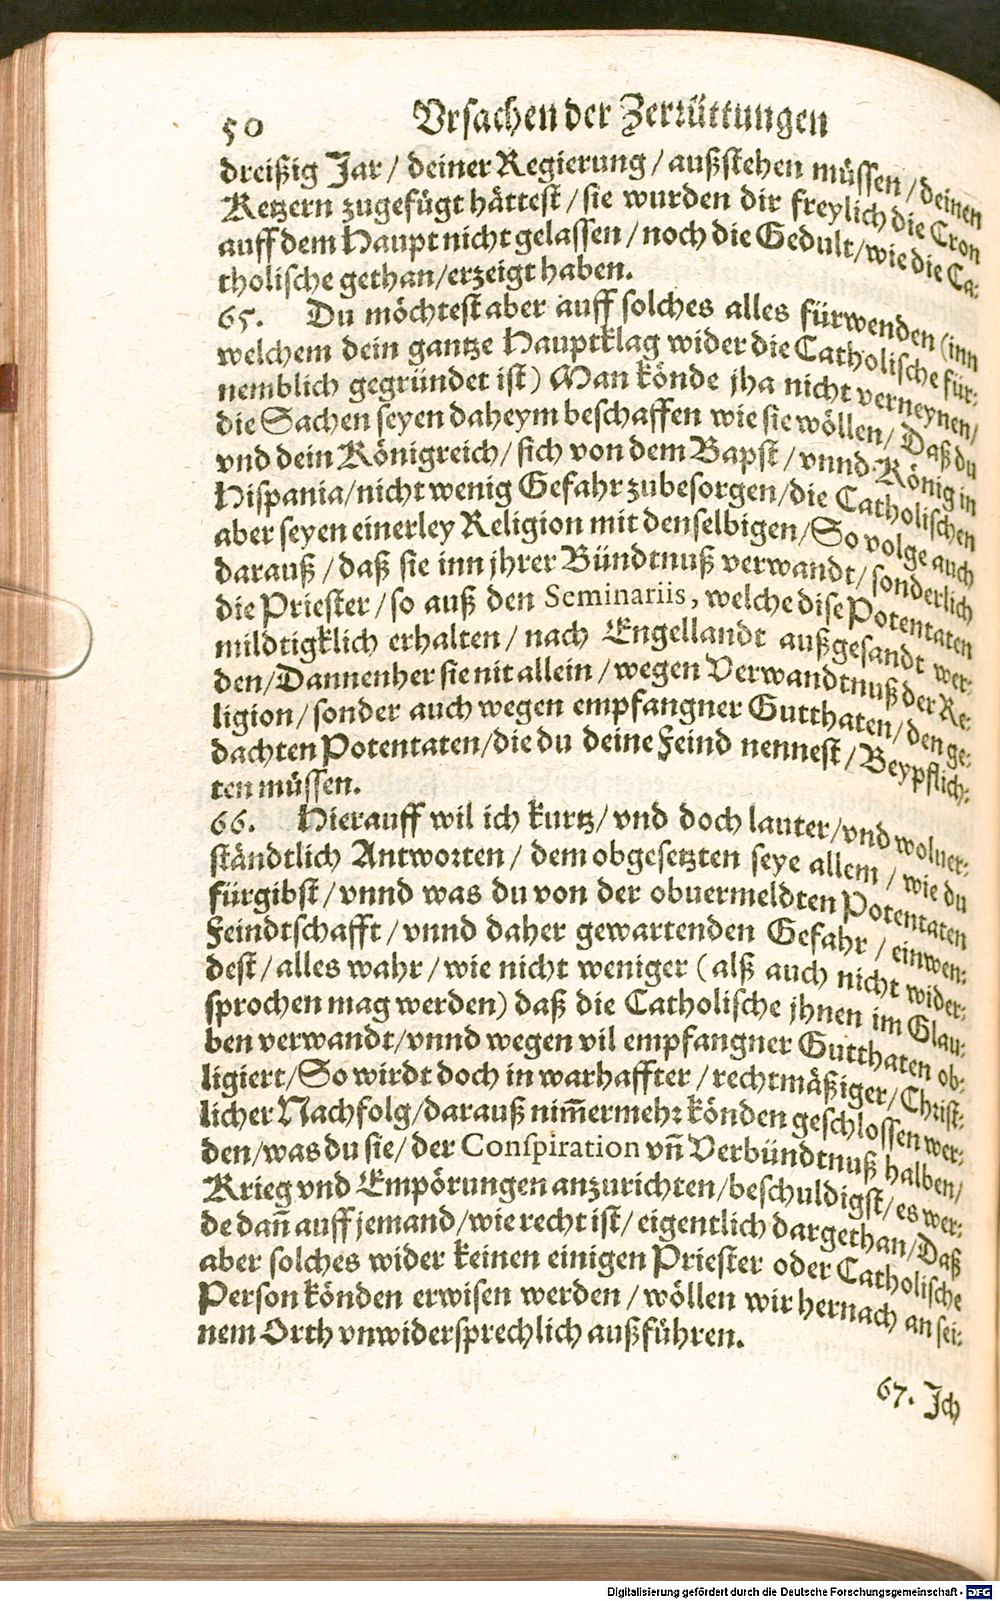 50 Vrsachen der Zerrüttungen
dreißig Jar / deiner Regierung / außstehen müssen / deinen
Ketzern zugefügt hättest / sie wurden dir freylich die Cron
auff dem Haupt nicht gelassen / noch die Gedult / wie die Ca-
tholische gethan / erzeigt haben.
65. Du möchtest aber auff solches alles fürwenden (inn
welchem dein gantze Hauptklag wider die Catholische für-
nemblich gegründet ist) Man könde jha nicht verneynen /
die Sachen seyen daheym beschaffen wie sie wöllen / Daß du
vnd dein Königreich / sich von dem Bapst / vnnd König in
Hispania / nicht wenig Gefahr zubesorgen / die Catholischen
aber seyen einerley Religion mit denselbigen / So volge auch
darauß / daß sie inn jhrer Bündtnuß verwandt / sonderlich
die Priester / so auß den Seminariis, welche dise Potentaten
mildtigklich erhalten / nach Engellandt außgesandt wer-
den / Dannenher sie nit allein / wegen Verwandtnuß der Re-
ligion / sonder auch wegen empfangner Gutthaten / den ge-
dachten Potentaten / die du deine Feind nennest / Beypflich-
ten müssen.
66. Hierauff wil ich kurtz / vnd doch lauter / vnd woluer-
ständtlich Antworten / dem obgesetzten seye allem / wie du
fürgibst / vnnd was du von der obuermeldten Potentaten
Feindtschafft / vnnd daher gewartenden Gefahr / einwen-
dest / alles wahr / wie nicht weniger (alß auch nicht wider-
sprochen mag werden) daß die Catholische jhnen im Glau-
ben verwandt / vnnd wegen vil empfangner Gutthaten ob-
ligiert / So wirdt doch in warhaffter / rechtmäßiger / Christ-
licher Nachfolg / darauß nim̅ermehr könden geschlossen wer-
den / was du sie / der Conspiration vn̅ Verbündtnuß halben /
Krieg vnd Empörungen anzurichten / beschuldigst / es wer-
de dan̅ auff jemand / wie recht ist / eigentlich dargethan / Daß
aber solches wider keinen einigen Priester oder Catholische
Person könden erwisen werden / wöllen wir hernach an sei-
nem Orth vnwidersprechlich außführen.
67. Jch
Digitalisierung gefördert durch die Deutsche Forschungsgemeinschaft - DFG